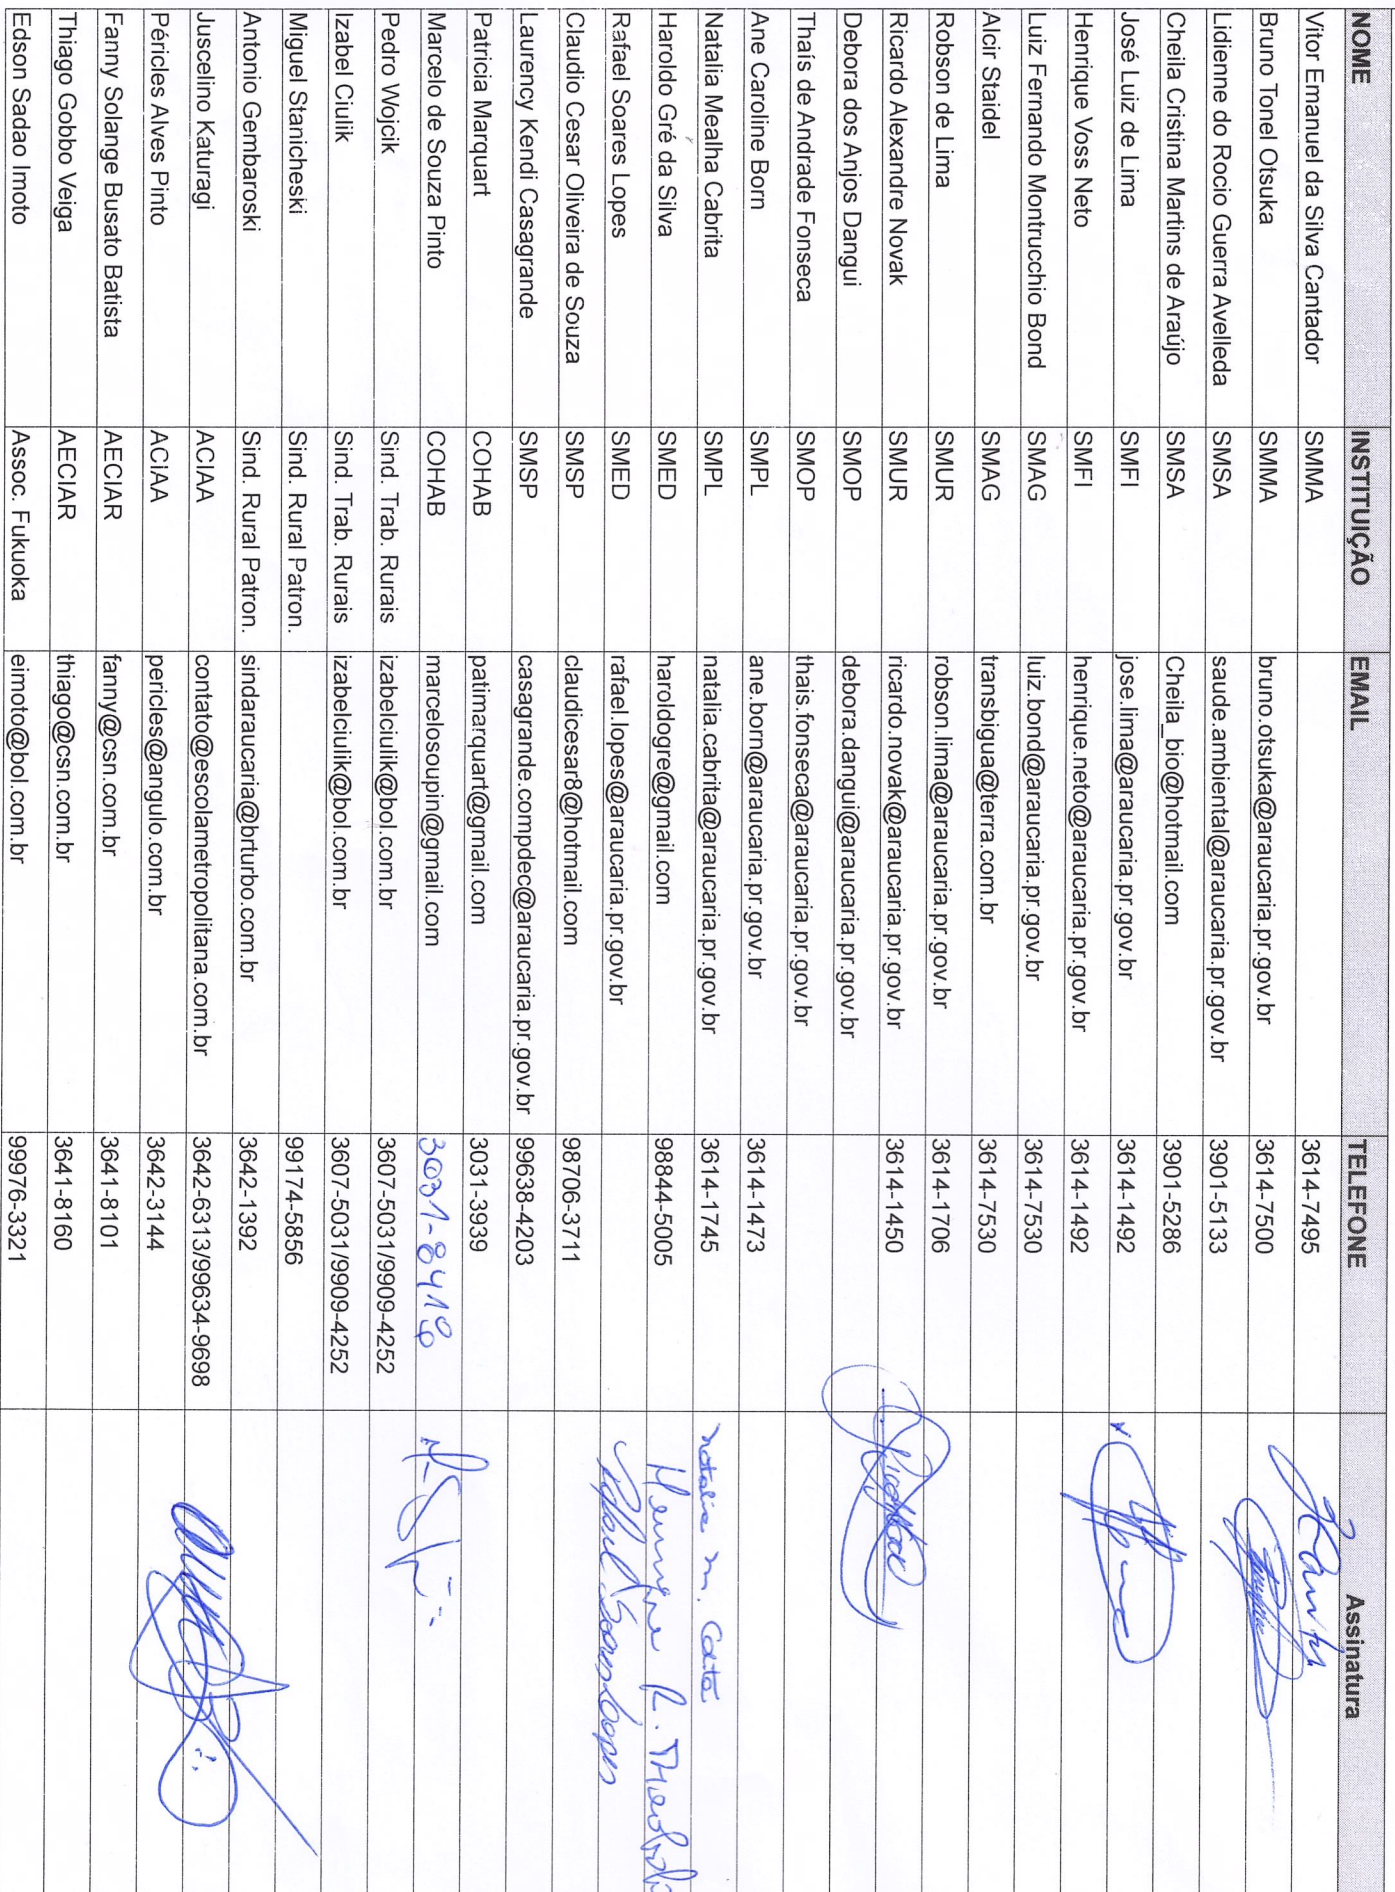 NOME INSTITUIÇÃO EMAIL TELEFONE Assinatura
Vitor Emanuel da Silva Cantador SMMA 3614-7495
Bruno Tonel Otsuka SMMA bruno.otsuka@araucaria.pr.gov.br 3614-7500
Lidienne do Rocio Guerra Avelleda SMSA saude.ambiental@araucaria.pr.gov.br 3901-5133
Cheila Cristina Martins de Araújo SMSA Cheila_bio@hotmail.com 3901-5286
José Luiz de Lima SMFI jose.lima@araucaria.pr.gov.br 3614-1492
Henrique Voss Neto SMFI henrique.neto@araucaria.pr.gov.br 3614-1492
Luiz Fernando Montrucchio Bond SMAG luiz.bond@araucaria.pr.gov.br 3614-7530
Alcir Staidel SMAG transbigua@terra.com.br 3614-7530
Robson de Lima SMUR robson.lima@araucaria.pr.gov.br 3614-1706
Ricardo Alexandre Novak SMUR ricardo.novak@araucaria.pr.gov.br 3614-1450
Debora dos Anjos Dangui SMOP debora.dangui@araucaria.pr.gov.br
Thaís de Andrade Fonseca SMOP thais.fonseca@araucaria.pr.gov.br
Ane Caroline Born SMPL ane.born@araucaria.pr.gov.br 3614-1473
Natalia Mealha Cabrita SMPL natalia.cabrita@araucaria.pr.gov.br 3614-1745 Natalia M.
Haroldo Gré da Silva SMED haroldogre@gmail.com 98844-5005
Rafael Soares Lopes SMED rafael.lopes@araucaria.pr.gov.br Rafael Soares Lopes
Claudio Cesar Oliveira de Souza SMSP claudiocesar8@hotmail.com 98706-3711
Laurency Kendi Casagrande SMSP casagrande.compdec@araucaria.pr.gov.br 99638-4203
Patricia Marquart COHAB patimarquart@gmail.com 3031-3939
Marcelo de Souza Pinto COHAB marcelosoupin@gmail.com 3031-8419
Pedro Wojcik Sind. Trab. Rurais izabelciulik@bol.com.br 3607-5031/9909-4252
Izabel Ciulik Sind. Trab. Rurais izabelciulik@bol.com.br 3607-5031/9909-4252
Miguel Stanicheski Sind. Rural Patron. 99174-5856
Antonio Gembaroski Sind. Rural Patron. sindaraucaria@brturbo.com.br 3642-1392
Juscelino Katuragi ACIAA contato@escolametropolitana.com.br 3642-6313/99634-9698
Péricles Alves Pinto ACIAA pericles@angulo.com.br 3642-3144
Fanny Solange Busato Batista AECIAR fanny@csn.com.br 3641-8101
Thiago Gobbo Veiga AECIAR thiago@csn.com.br 3641-8160
Edson Sadao Imoto Assoc. Fukuoka eimoto@bol.com.br 99976-3321